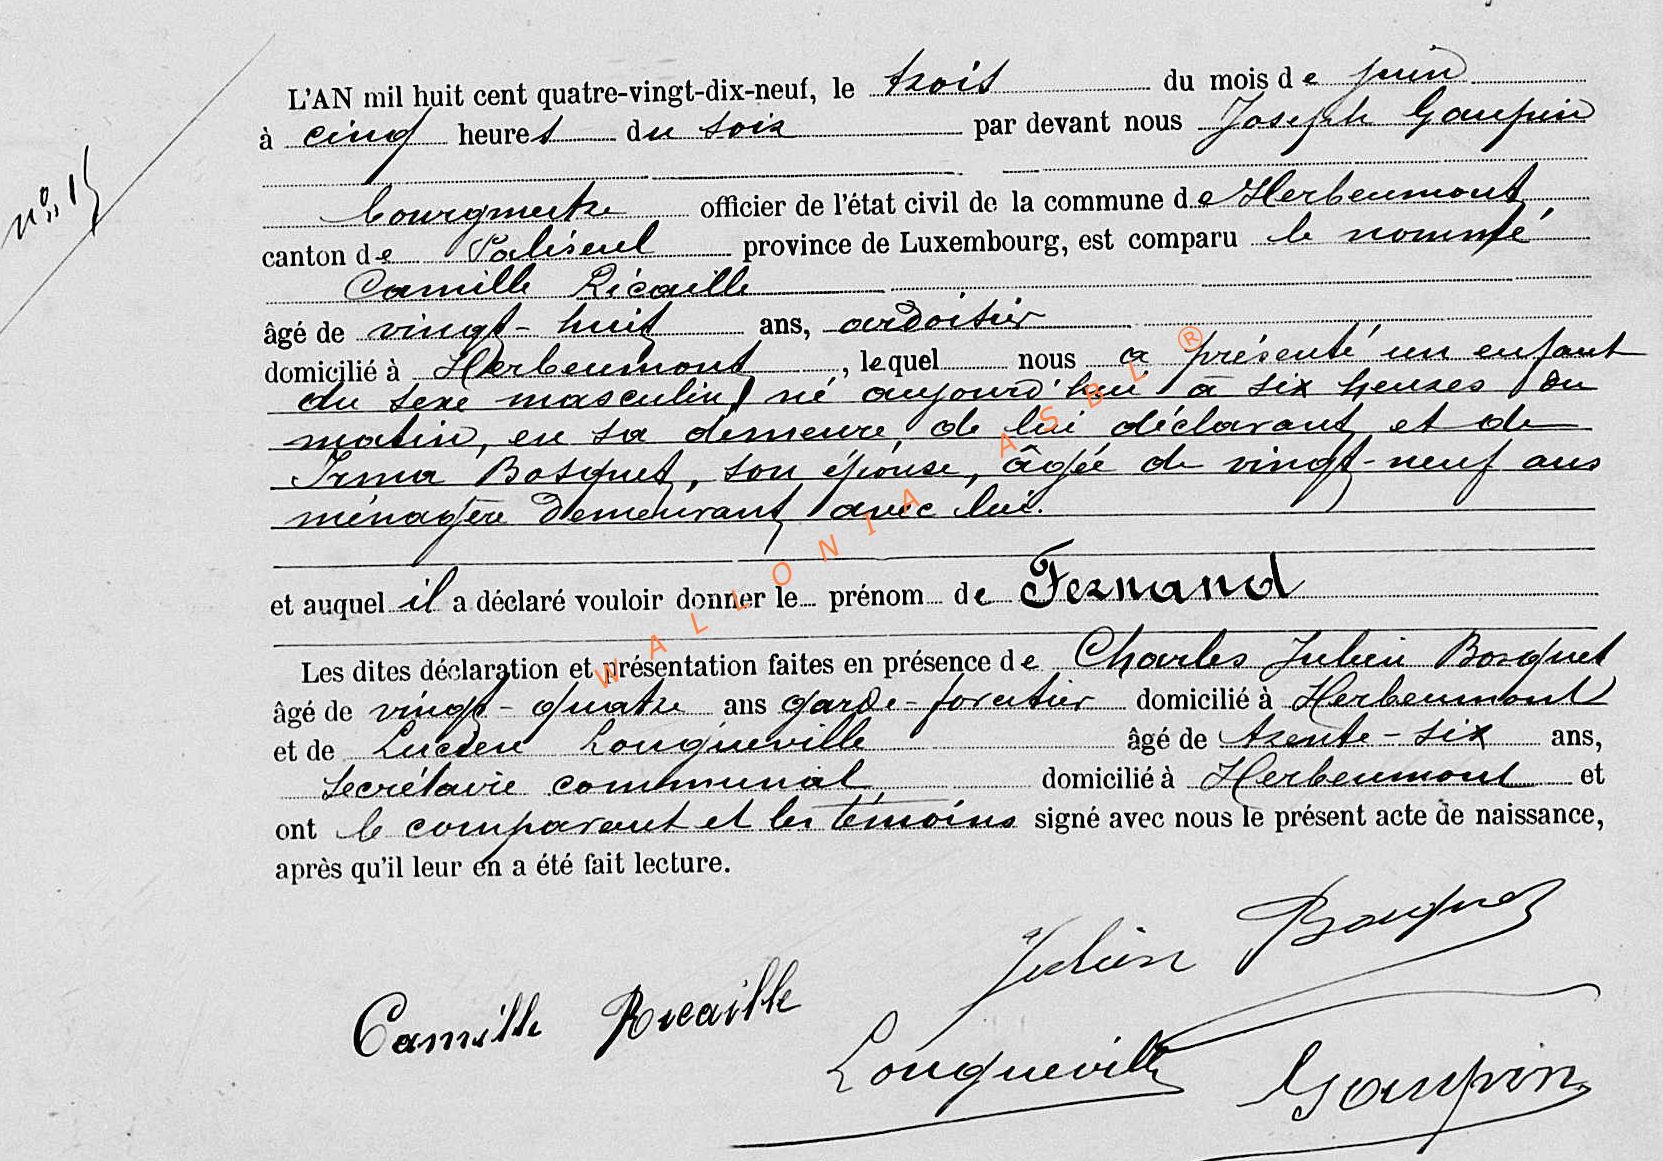 L'AN mil huit cent quatre-vingt-dix-neuf, le trois du mois de juin
à cinq heures du soir par devant nous Joseph Goupin
n° 15
bourgmestre officier de l'état civil de la commune de Herbeumont
canton de Paliseul province de Luxembourg, est comparu le nommé
Camille Récaille
âgé de vingt-huit ans, ardoisier
domicilié à Herbeumont, lequel nous a présenté un enfant
du sexe masculin né aujourd'hui à six heures du
matin, en sa demeure, de lui déclarant et de
Irma Bosquet, son épouse, âgée de vingt-neuf ans
ménagère demeurant avec lui.
et auquel il a déclaré vouloir donner le prénom de Fernand
Les dites déclaration et présentation faites en présence de Charles Julien Bosquet
âgé de vingt-quatre ans garde-forestier domicilié à Herbeumont
et de Lucien Longueville âgé de trente-six ans,
secrétaire communal domicilié à Herbeumont et
ont le comparant et les témoins signé avec nous le présent acte de naissance,
après qu'il leur en a été fait lecture.
Julien Bosquet
Camille Recaille
Longueville
Goupin
WALLONIA ASBL ®